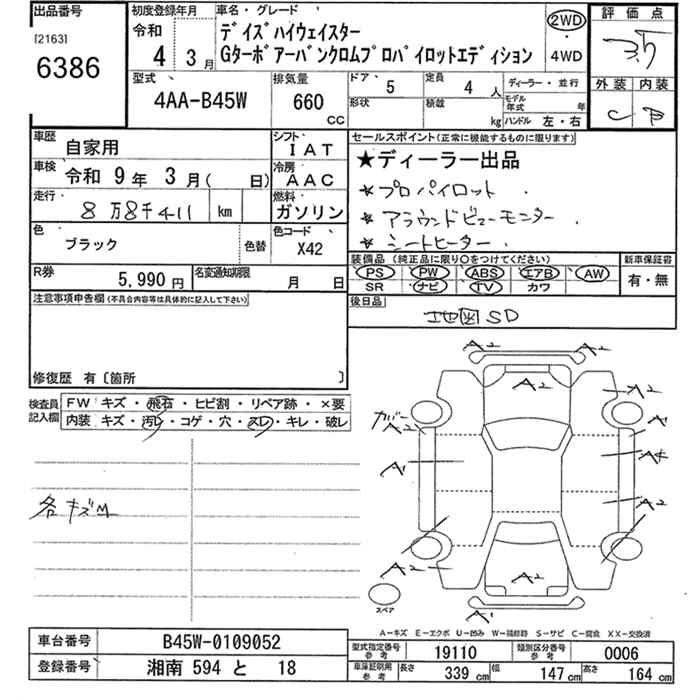 出品番号
[2163]
6386
初度登録年月
令和
4 3月
車名・グレード
デイズハイウェイスター
Gターボアーバンクロムプロパイロットエディション
2WD
・
4WD
評価点
3.5
外装 内装
C
型式
4AA-B45W
排気量
660
CC
ドア 5
形状
定員 4 人
積載 kg
ディーラー・並行
モデル年式 年
ハンドル 左・右
車歴
自家用
シフト
IAT
車検
令和 9年 3月( 日)
冷房
AAC
走行
8万8千411 km
燃料
ガソリン
色
ブラック
色替
色コード
X42
R券
5,990円
名変通知期限
月 日
セールスポイント(正常に機能するものに限ります)
★ディーラー出品
★プロパイロット
★アラウンドビューモニター
★シートヒーター
装備品(純正品に限り○をつけてください)
PS PW ABS エアB AW
SR ナビ TV カワ
新車保証書
有・無
後日品
地図SD
注意事項申告欄(不具合内容等は具体的に記入して下さい)
修復歴 有〔箇所 〕
検査員記入欄
FW キズ・飛石・ヒビ割・リペア跡・×要
内装 キズ・汚レ・コゲ・穴・スレ・キレ・破レ
各キズM
A2 A2
A2
A2
カバー
A2
A'
A'
A2
A2
A2
A2
A2
A2
スペア
A-キズ E-エクボ U-凹み W-補修跡 S-サビ C-腐食 XX-交換済
車台番号 B45W-0109052
登録番号 湘南 594 と 18
型式指定番号 参考 19110
類別区分番号 参考 0006
車庫証明用 参考 長さ 339 cm 幅 147 cm 高さ 164 cm